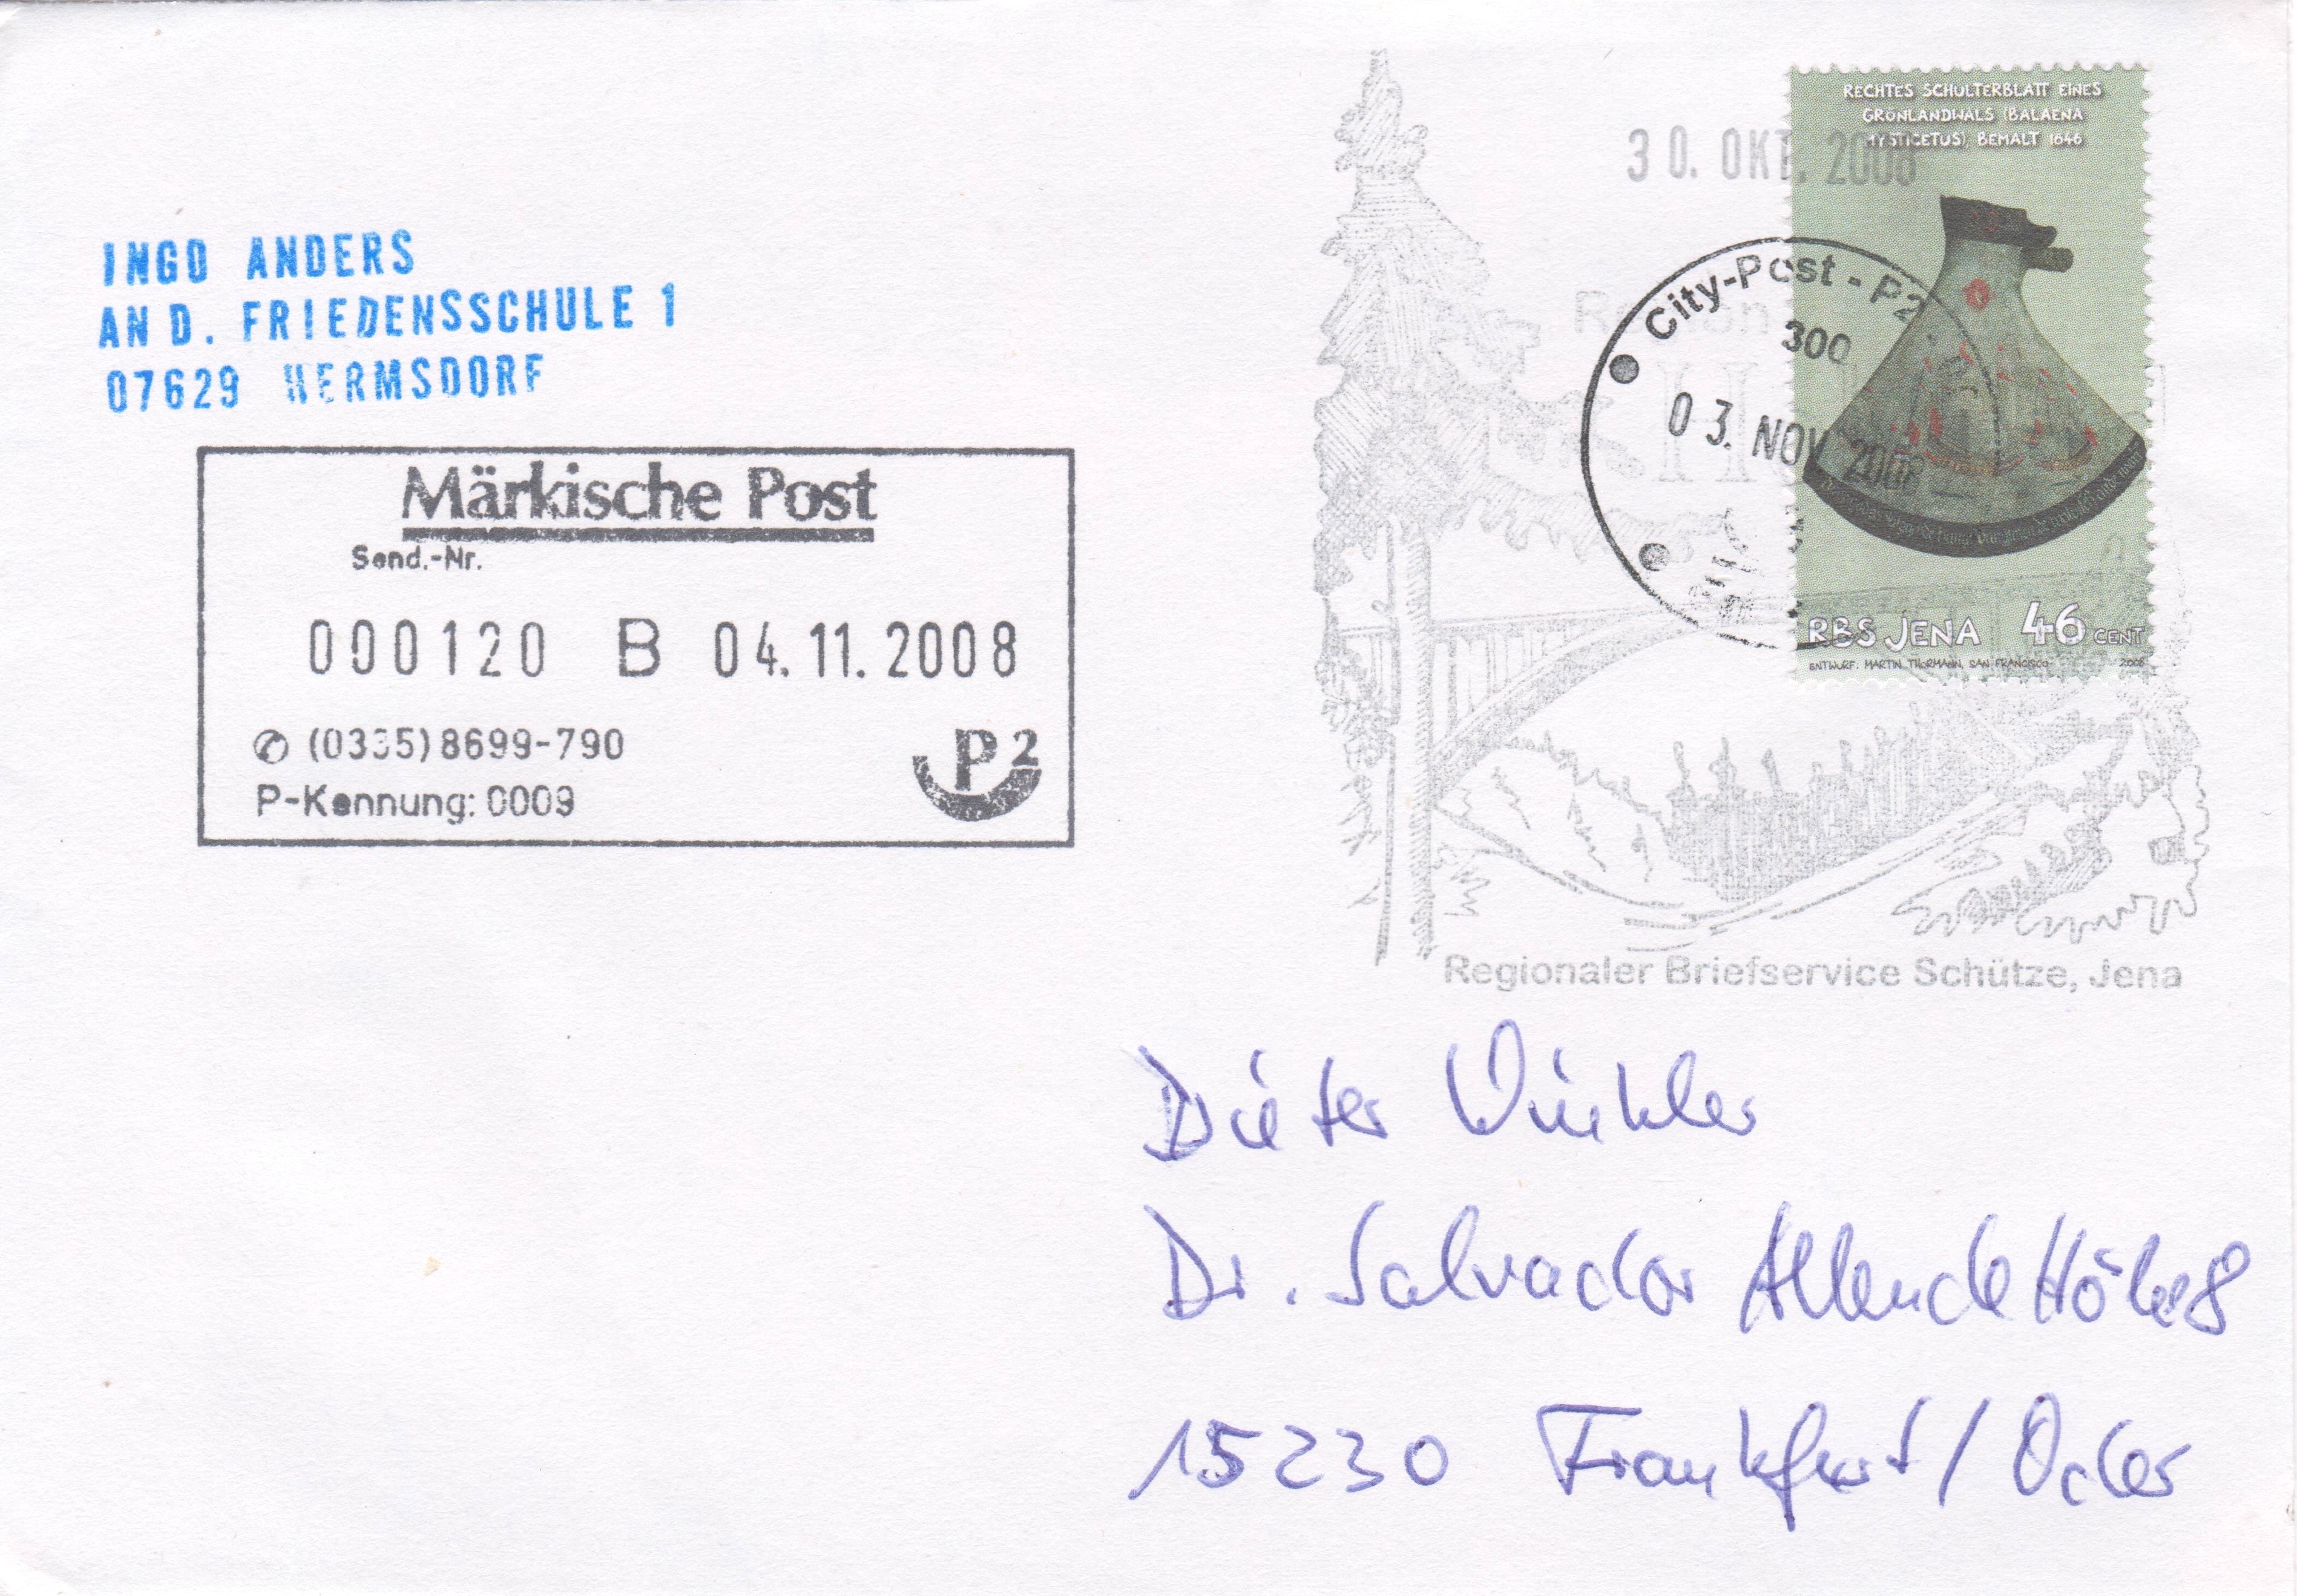 INGO ANDERS
AN D. FRIEDENSSCHULE 1
07629 HERMSDORF
Märkische Post
Send.-Nr.
000120 B 04.11.2008
✆ (0335) 8699-790
P-Kennung: 0009
P2
RECHTES SCHULTERBLATT EINES
GRÖNLANDWALS (BALAENA
MYSTICETUS), BEMALT 1646
30. OKT. 2008
City-Post - P2
300
03. NOV 2008
RBS JENA 46 CENT
ENTWURF: MARTIN THORMANN, SAN FRANCISCO 2008
Regionaler Briefservice Schütze, Jena
Dieter Winkler
Dr. Salvador Allende Höhe 8
15230 Frankfurt / Oder